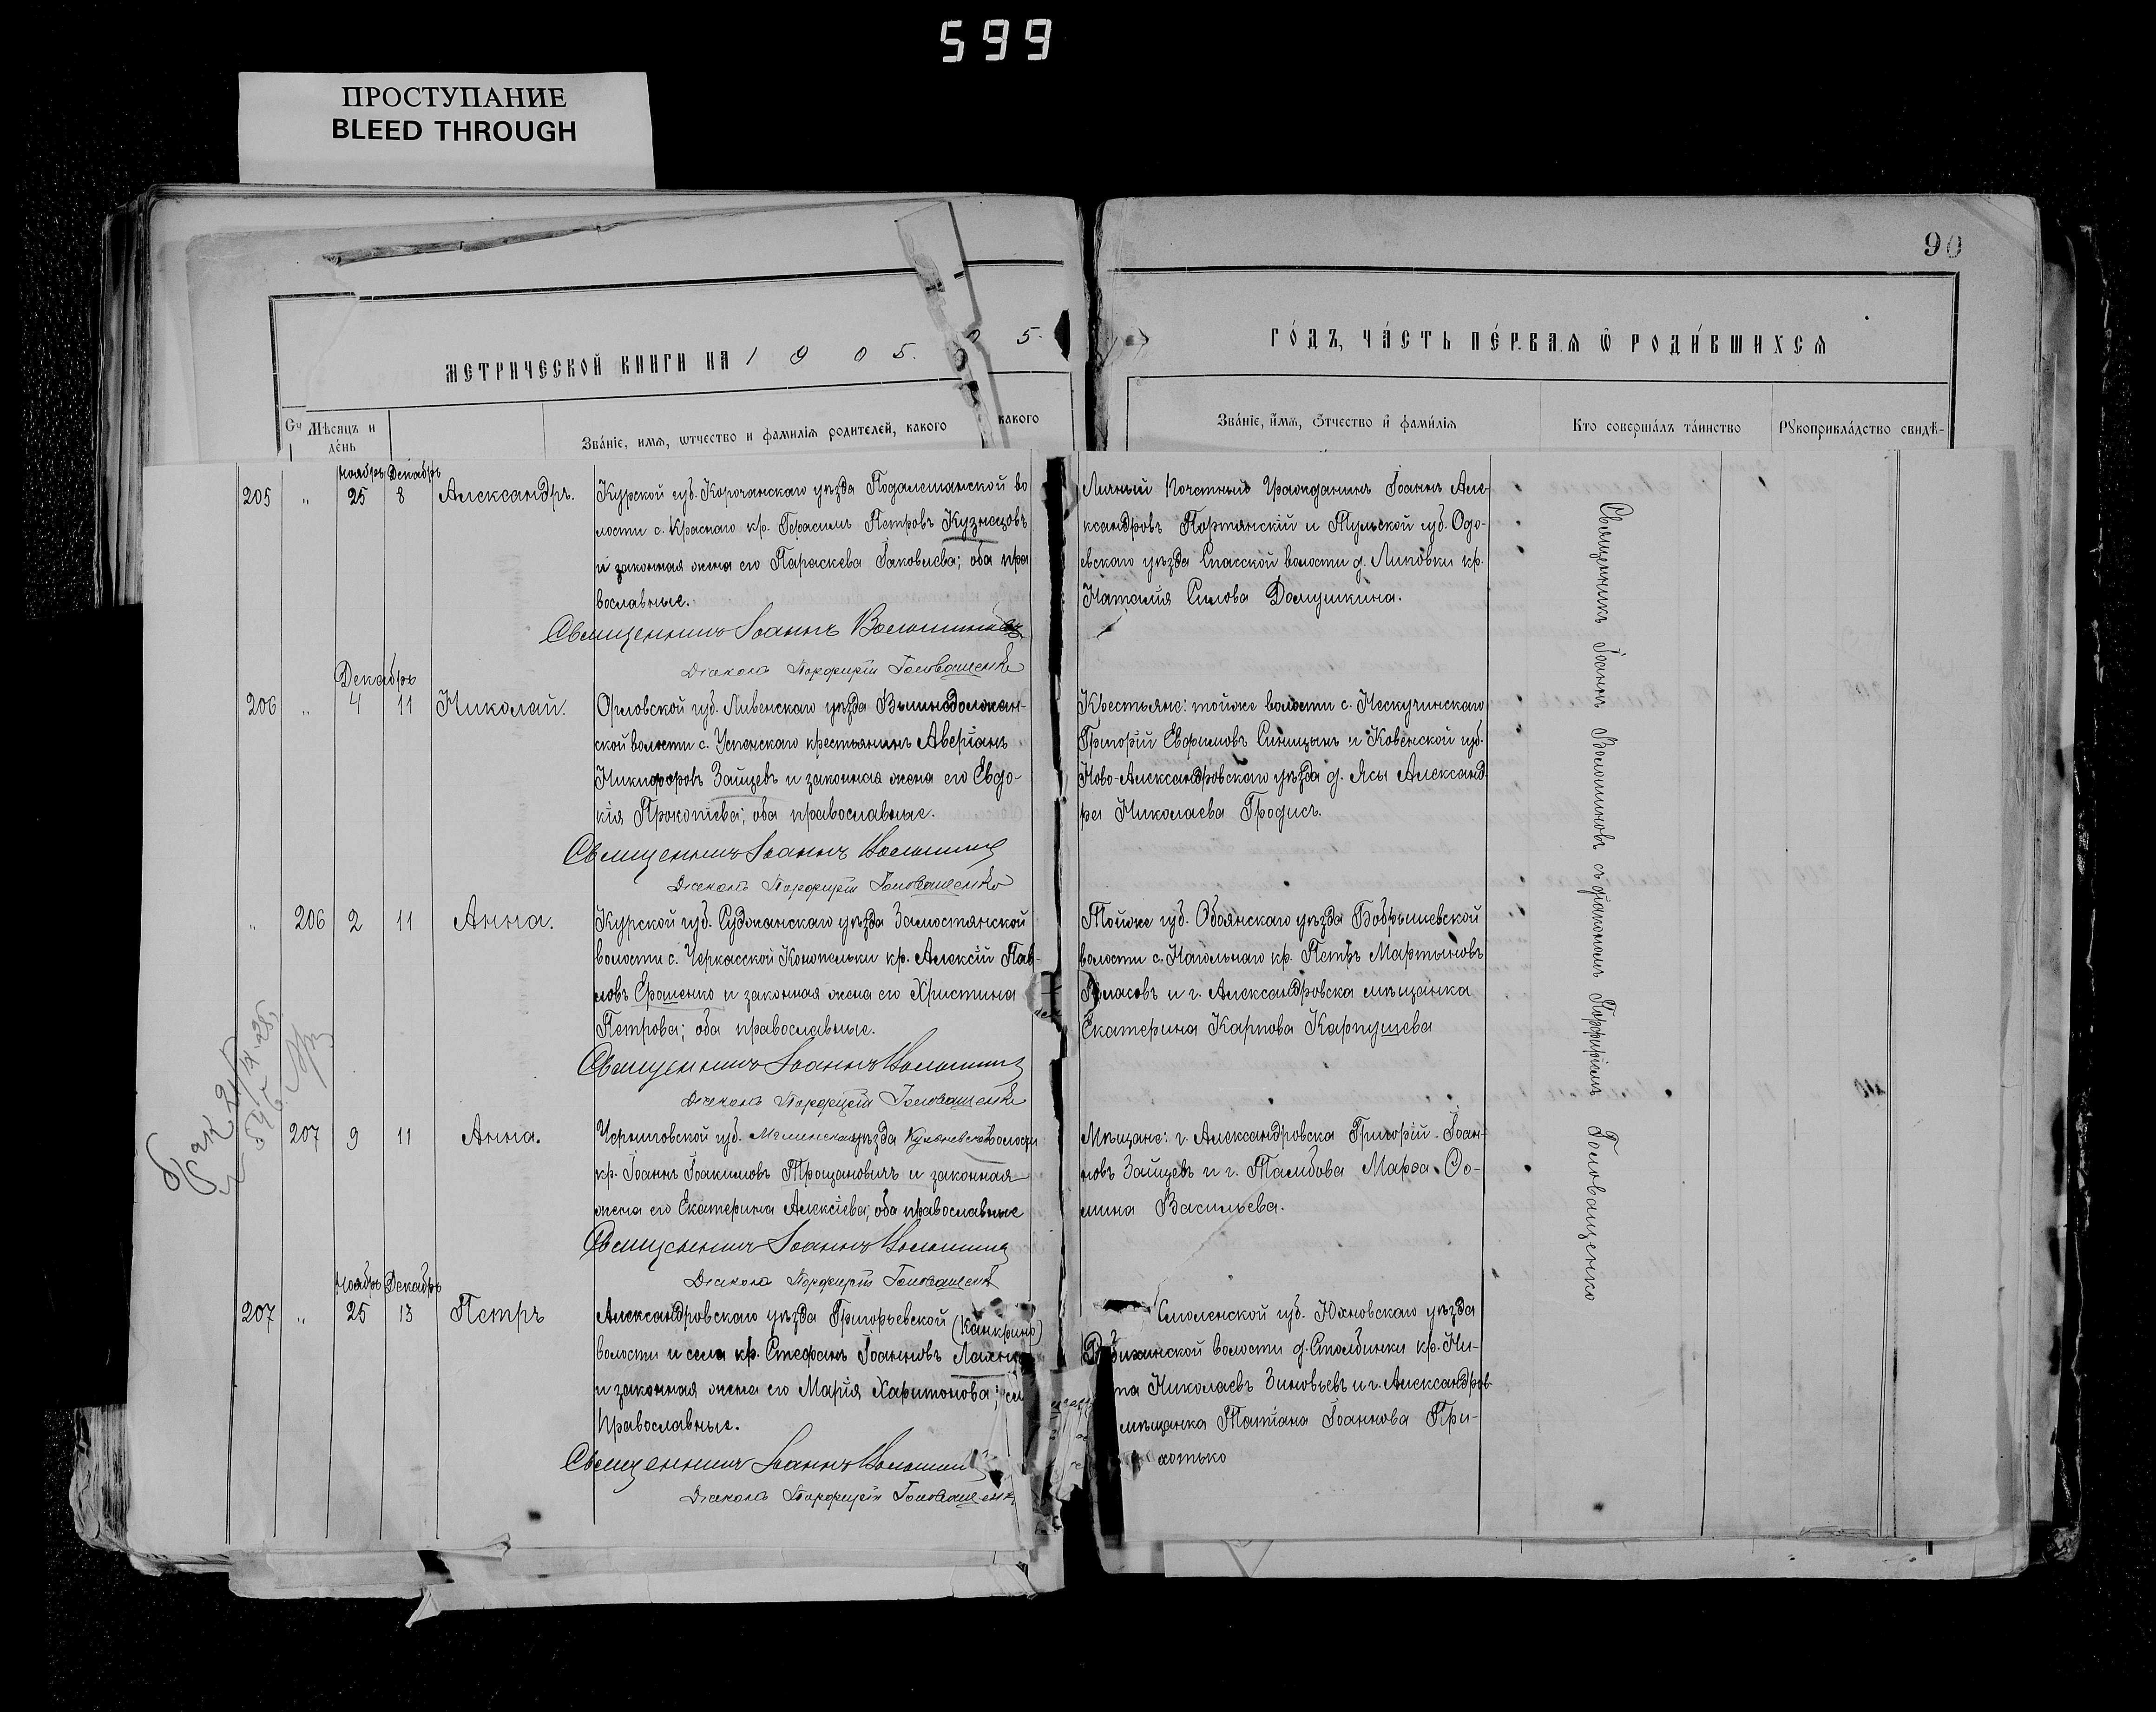 599
ПРОСТУПАНИЕ
BLEED THROUGH
90
МЕТРИЧЕСКОЙ КНИГИ НА 1905. 5.
ГО́ДЪ, ЧА́СТЬ ПЕ́РВАЯ Ѿ РОДИ́ВШИХСЯ
Сч Мѣсяцъ и
де́нь
Зва́нїе, имя, ѡтчество и фамилїя родителей, какого
какого
Зва́нїе, и́мя, ѻ́тчество и҆ фами́лїя
Кто совершалъ та́инство
Рꙋкоприкла́дство свидѣ-
Ноябрь Декабрь
205 " 25 8 Александръ.
Курской губ. Корочанскаго уѣзда Подалешанской во
лости с. Краснаго кр. Герасимъ Петровъ Кузнецовъ
и законная жена его Параскева Іаковлева; оба пра
вославные.
Священникъ Іоаннъ Волошиновъ
Діаконъ Порфирій Головащенко
Личный Почетный Гражданинъ Іоаннъ Але-
ксандровъ Портянскій и Тульской губ. Одо-
евскаго уѣзда Спасской волости д. Липовки кр.
Наталія Силова Долгушкина.
Декабрь
206 " 4 11 Николай.
Орловской губ. Ливенскаго уѣзда
ской волости с. Успенскаго крестьянинъ Аверіанъ
Никифоровъ Зайцевъ и законная жена его Евдо-
кія Прокопіева; оба православные.
Священникъ Іоаннъ Волошинов
Діаконъ Порфирій Головащенко
Крестьяне: тойже волости с. Нескучинскаго
Григорій Евфимовъ Синицынъ и Ковенской губ.
Ново-Александровскаго уѣзда д. Ясы Александ-
ра Николаева Гродисъ.
" 206 2 11 Анна.
Курской губ. Суджанскаго уѣзда Замостянской
волости с. Черкасской Конопельки кр. Алексій Пав-
ловъ Ерошенко и законная жена его Христина
Петрова; оба православные.
Священникъ Іоаннъ Волошинов
Діаконъ Порфирій Головащенко
Тойже губ. Обоянскаго уѣзда Бобрышевской
волости с. Нагольнаго кр. Петръ Мартыновъ
Власовъ и г. Александровска мѣщанка
Екатерина Карпова Карпушева
брак
207 9 11 Анна.
Черниговской губ. Мглинскаго уѣзда волости
кр. Іоаннъ Іоакимовъ Трощановичъ и законная
жена его Екатерина Алексіева; оба православные
Священникъ Іоаннъ Волошинов
Діаконъ Порфирій Головащенко
Мѣщане: г. Александровска Григорій Іоан-
новъ Зайцевъ и г. Тамбова Марѳа Ѳо-
мина Васильева.
Ноябрь Декабрь
207 " 25 13 Петръ
Александровскаго уѣзда Григорьевской (Канкрино)
волости и села кр. Стефанъ Іоанновъ
и законная жена его Марія Харитонова;
православные.
Священникъ Іоаннъ Волошинов
Діаконъ Порфирій Головащенко
Смоленской губ. Юхновскаго уѣзда
волости д. Столбинки кр. Ни-
та Николаевъ Зиновьевъ и г. Александров-
мѣщанка Татіана Іоаннова При-
хотько
Священникъ Іоаннъ Волошиновъ съ діакономъ Порфиріемъ Головащенко